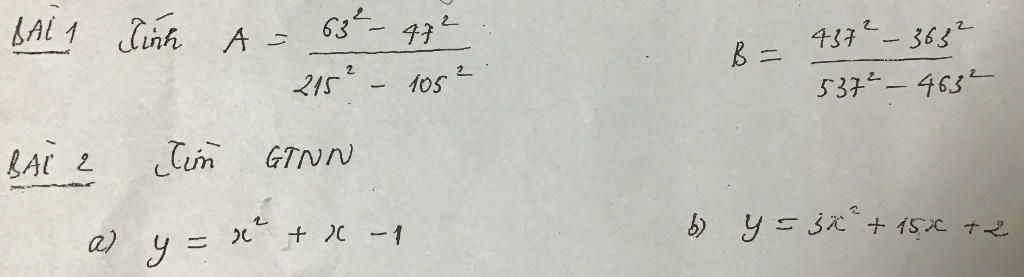 BÀI 1 Tính A = (63² - 47²) / (215² - 105²) B = (437² - 363²) / (537² - 463²)
BÀI 2 Tìm GTNN
a) y = x² + x - 1 b) y = 3x² + 15x + 2